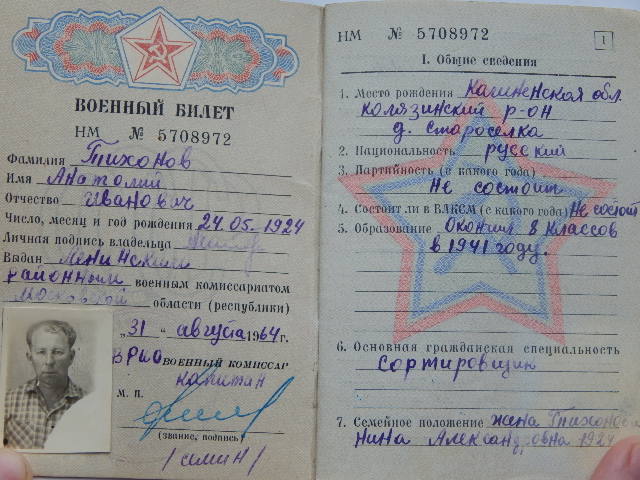 ВОЕННЫЙ БИЛЕТ
НМ № 5708972
Фамилия Тихонов
Имя Анатолий
Отчество Иванович
Число, месяц и год рождения 24.05.1924
Личная подпись владельца
Выдан Ленинским
районным военным комиссариатом
Московской области (республики)
„31" августа 1964 г.
ВРИО ВОЕННЫЙ КОМИССАР
капитан
М. П.
(звание, подпись)
/семин/
НМ № 5708972
1
I. Общие сведения
1. Место рождения Калининская обл.
Колязинский р-он
д. Староселка
2. Национальность русский
3. Партийность (с какого года)
Не состоит
4. Состоит ли в ВЛКСМ (с какого года) Не состоит
5. Образование Окончил 8 классов
в 1941 году.
6. Основная гражданская специальность
Сортировщик
7. Семейное положение жена Тихонова
Нина Александровна 1924